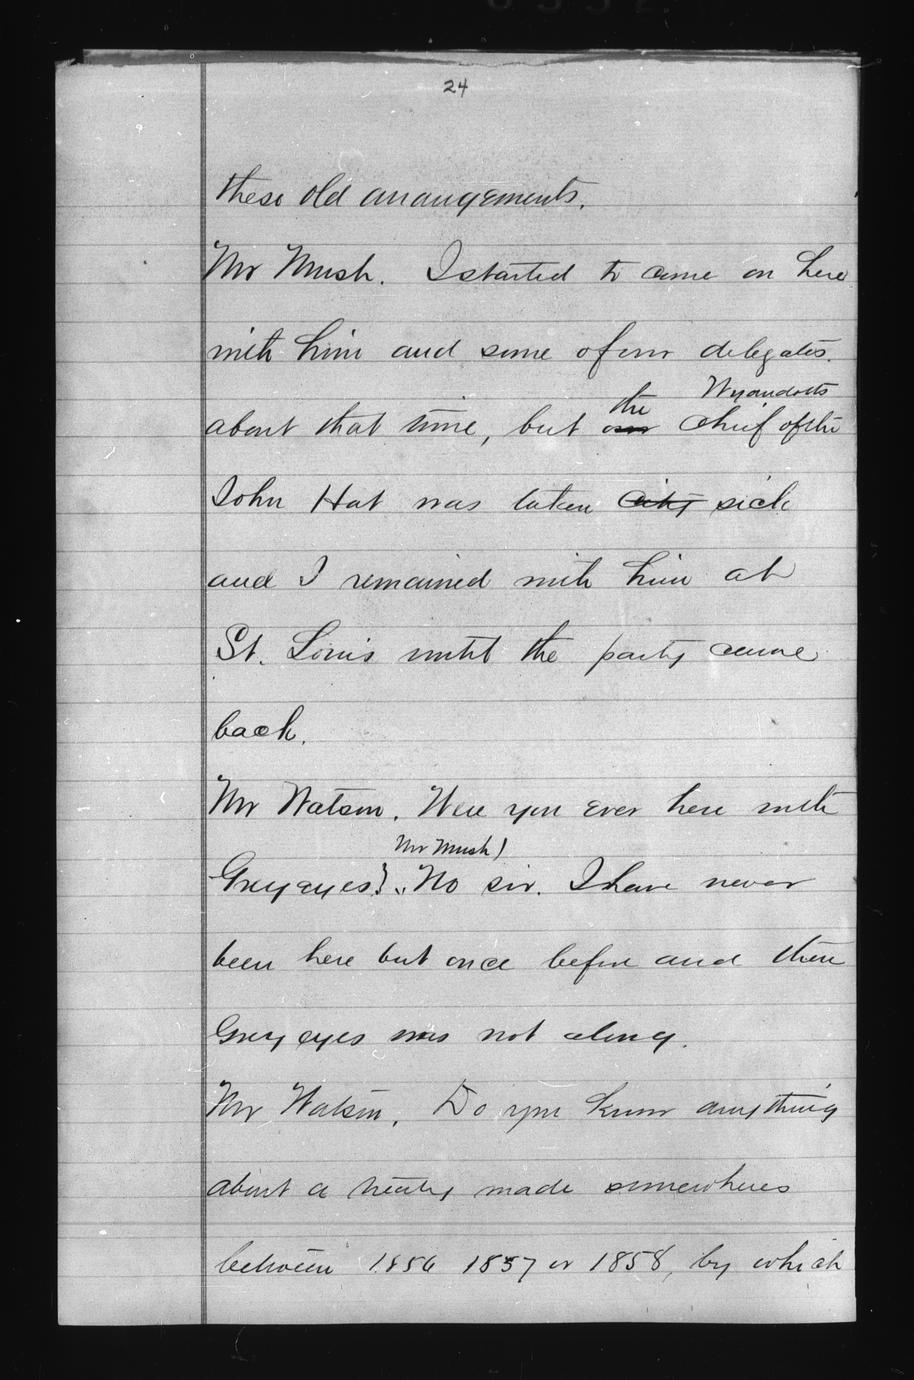 24
these old arrangements.
Mr Mush. I started to come on here
with him and some of our delegates.
about that time, but the ~~our~~ chief of the Wyandotts
John Hat was taken ~~city~~ sick
and I remained with him at
St. Louis until the party came
back.
Mr Watson. Were you ever here with
Greyeyes? (Mr Mush) No sir. I have never
been here but once before and then
Grey eyes was not along.
Mr Watson. Do you know anything
about a treaty made somewheres
between 1856 1857 or 1858, by which